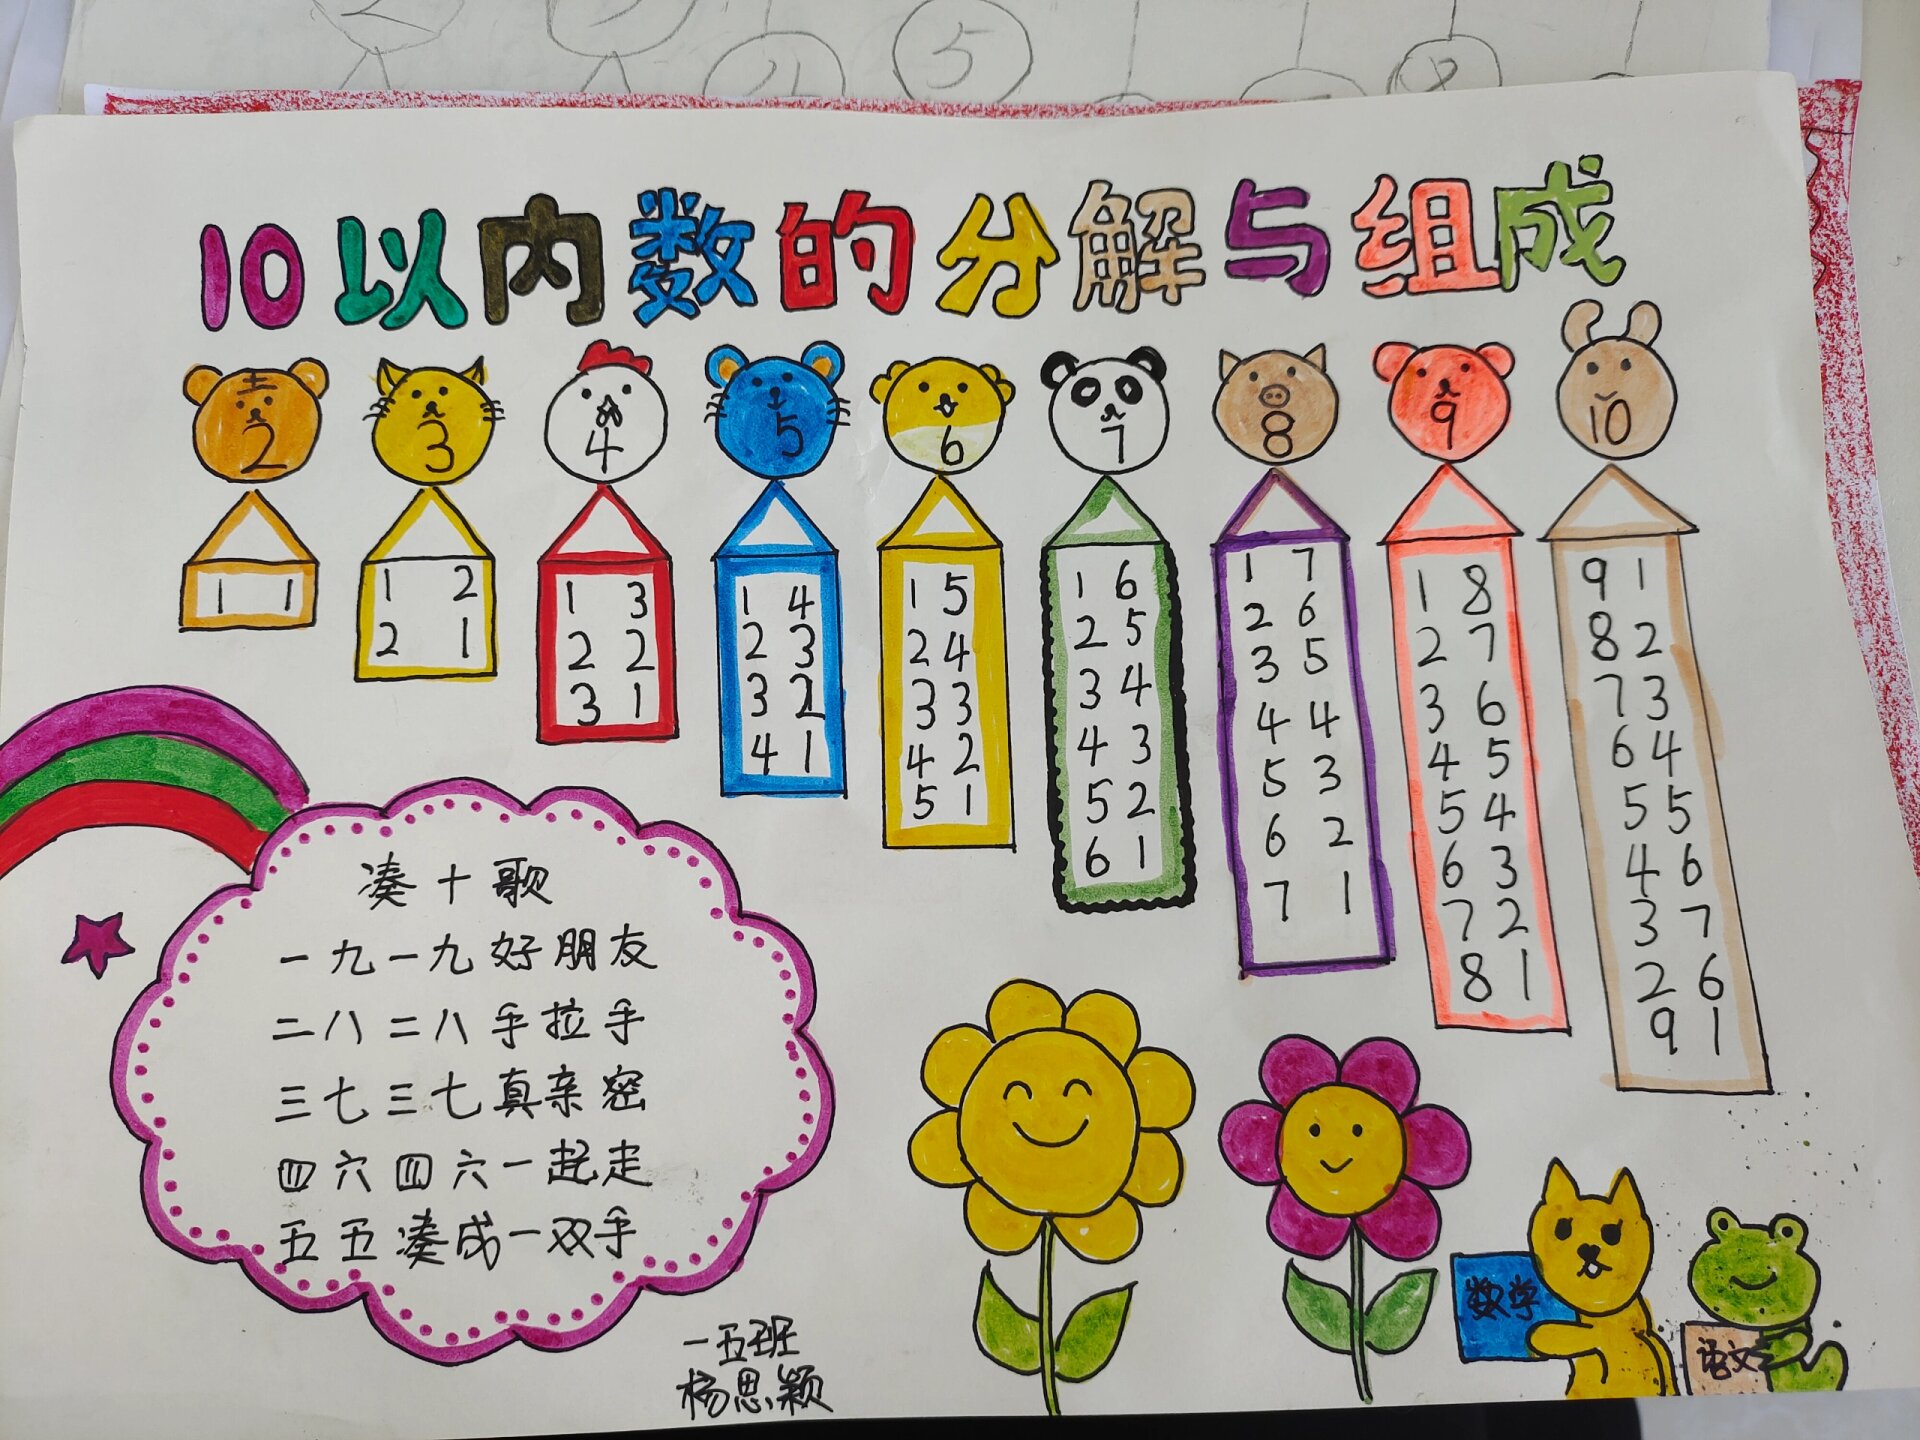 5
10以内数的分解与组成
2 3 4 5 6 7 8 9 10
1 1
1 2
2 1
1 3
2 2
3 1
1 4
2 3
3 2
4 1
1 5
2 4
3 3
4 2
5 1
1 6
2 5
3 4
4 3
5 2
6 1
1 7
2 6
3 5
4 4
5 3
6 2
7 1
1 8
2 7
3 6
4 5
5 4
6 3
7 2
8 1
9 1
8 2
7 3
6 4
5 5
4 6
3 7
2 6
9 1
凑十歌
一九一九好朋友
二八二八手拉手
三七三七真亲密
四六四六一起走
五五凑成一双手
一五班
杨思颖
数学
语文